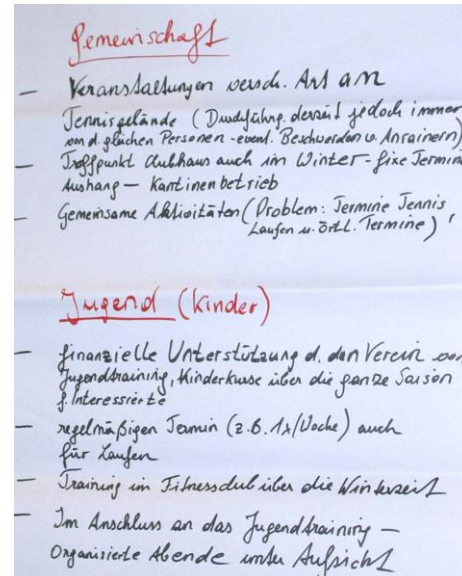 Gemeinschaft
– Veranstaltungen versch. Art am
Tennisgelände (Durchführg. derzeit jedoch immer
von d. gleichen Personen - event. Beschwerden v. Anrainern)
– Treffpunkt Clubhaus auch im Winter - fixe Termine
Aushang – Kantinenbetrieb
– Gemeinsame Aktivitäten (Problem: Termine Tennis
Laufen u. örtl. Termine)
Jugend (Kinder)
– finanzielle Unterstützung d. den Verein von
Jugendtraining, Kinderkurse über die ganze Saison
f. Interessierte
– regelmäßigen Termin (z.B. 1x/Woche) auch
für Laufen
– Training im Fitnessclub über die Winterzeit
– Im Anschluss an das Jugendtraining –
Organisierte Abende unter Aufsicht